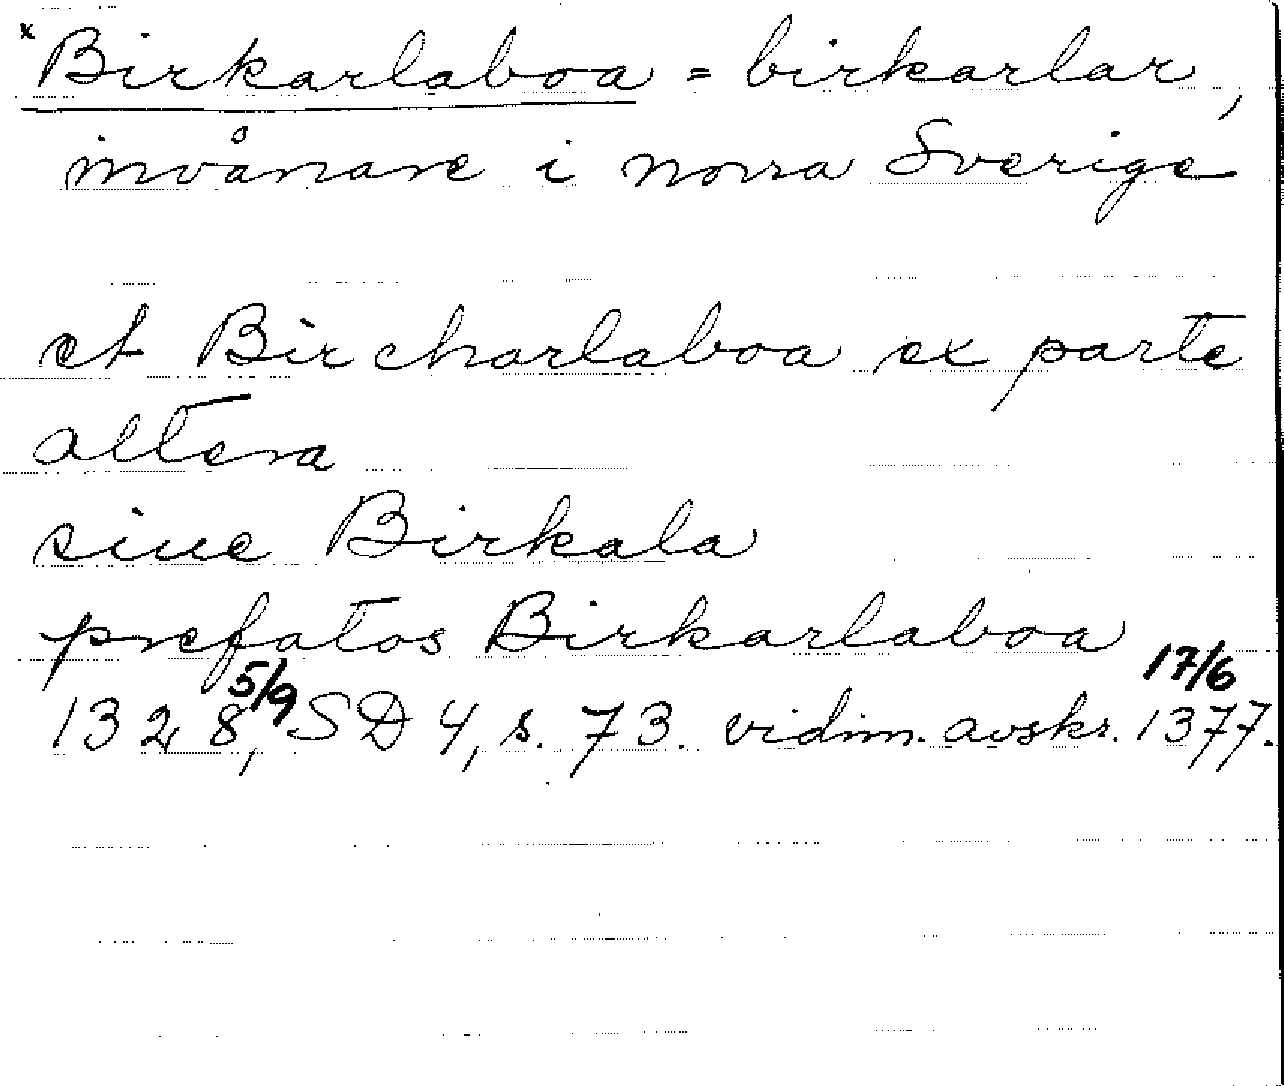 x Birkarlaboa = birkarlar,
invånare i norra Sverige
et Bircharlaboa ex parte
altera
siue Birkala
prefatos Birkarlaboa
1328 5/9, SD 4, s. 73. vidim. avskr. 1377 17/6.